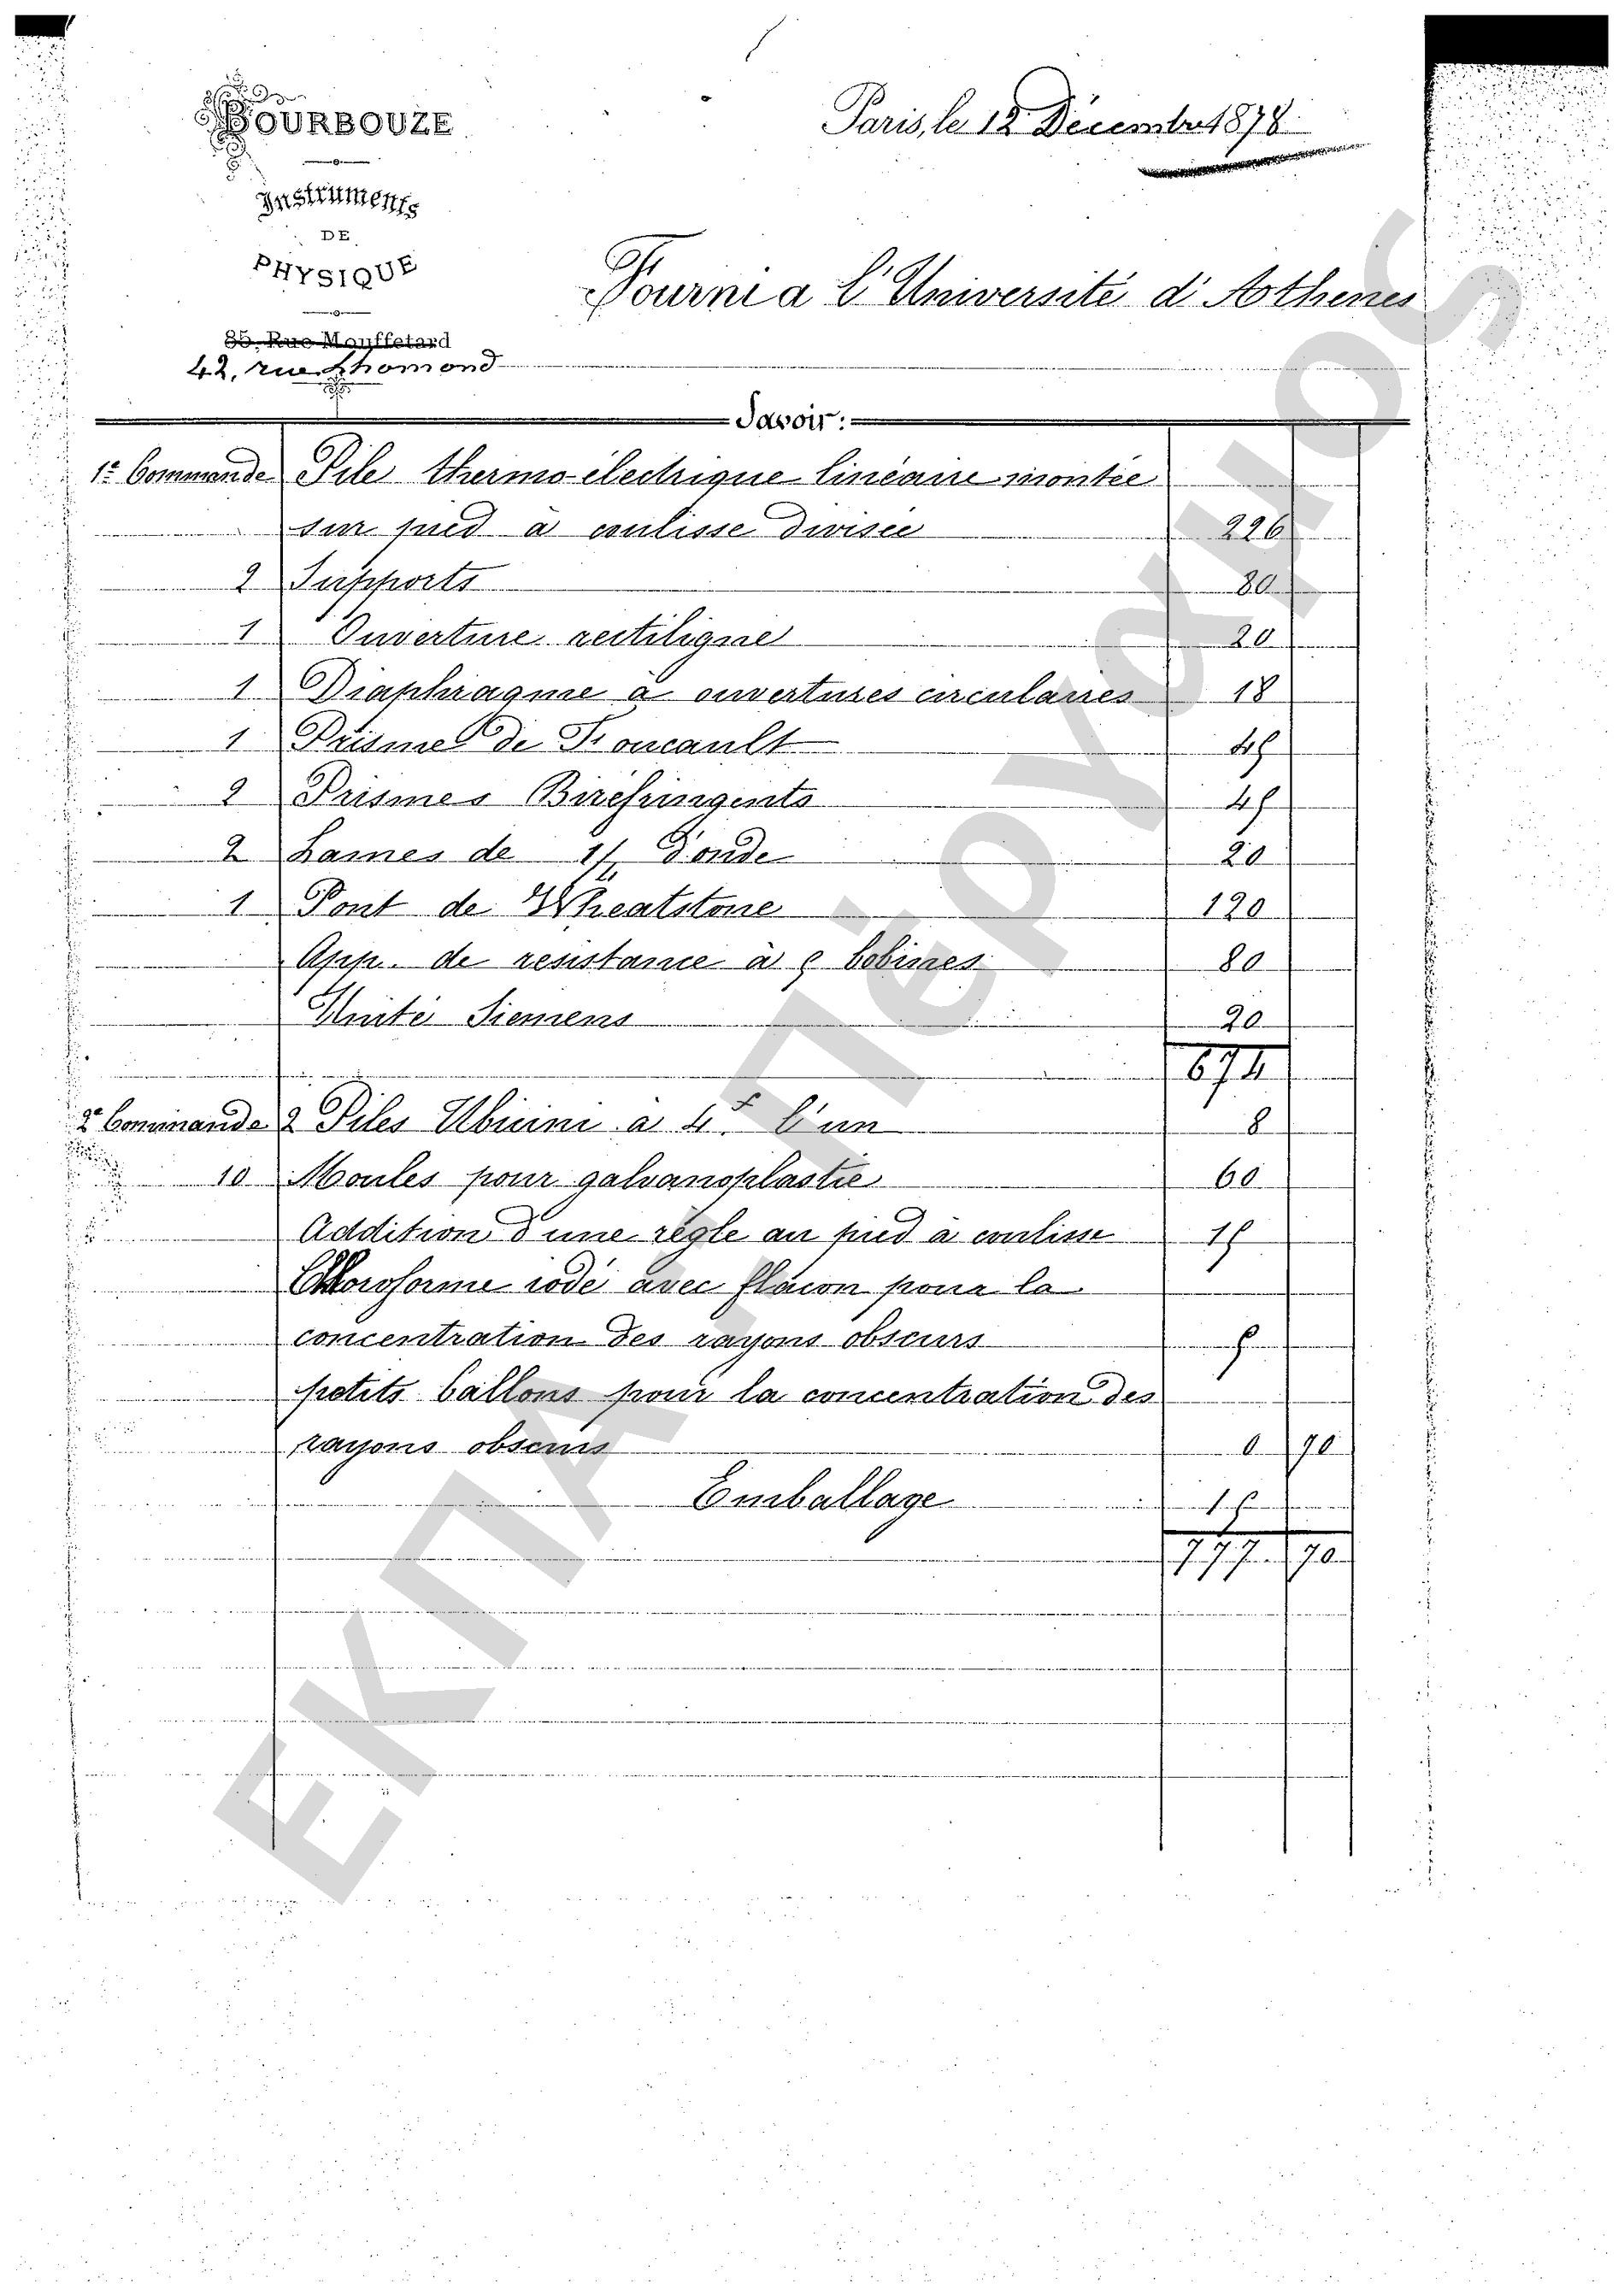 BOURBOUZE
Instruments
DE
PHYSIQUE
85, Rue Mouffetard
42, rue Lhomond
Paris, le 12 Décembre 1878
Fourni a l'Université d'Athenes
Savoir:
1e Commande Pile thermo-électrique linéaire montée
sur pied à coulisse divisée 226
2 Supports 80
1 Ouverture rectiligne 20
1 Diaphragme a ouvertures circulaires 18
1 Prisme de Foucault 45
2 Prismes Birefringents 45
2 Lames de 1/4 d'onde 20
1 Pont de Wheatstone 120
App. de resistance à 5 bobines 80
Unité Siemens 20
674
2e Commande 2 Piles Ubicini a 4f l'un 8
10 Moules pour galvanoplastie 60
Addition d'une règle au pied à coulisse 15
Chloroforme iodé avec flacon pour la
concentration des rayons obscurs 5
petits ballons pour la concentration des
rayons obscurs 0 90
Emballage 15
777 90
ΕΚΠΑ - Πέργαμος